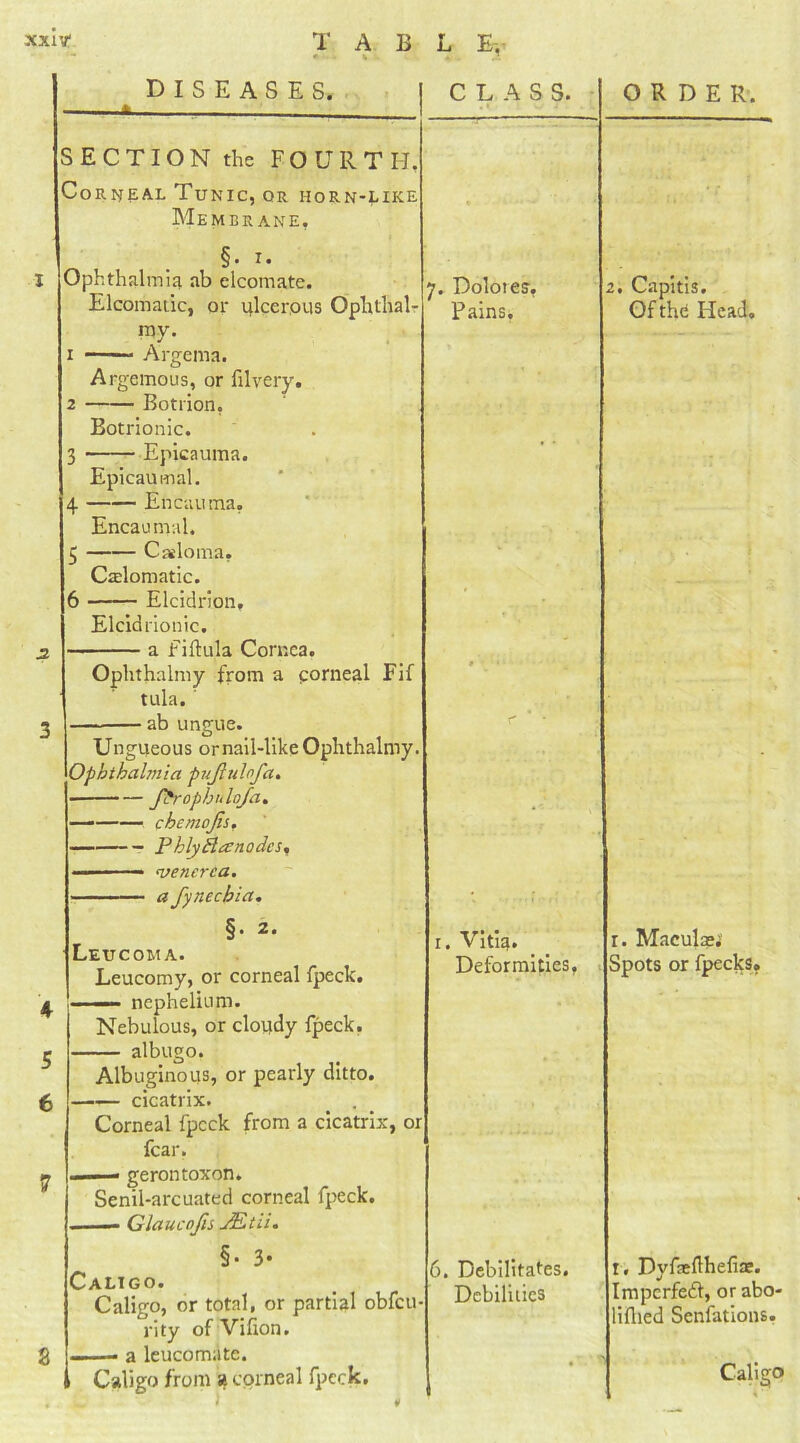 xxiv T A B L E.
DISEASES. CLASS. ORDER.
SECTION the FOURTH.
CORNEAL TUNIC, OR HORN-LIKE
MEMBRANE.
§. 1.
1 Ophthalmia ab elcomate. 7. Dolores, 2. Capitis.
Elcomatic, or ulcerous Ophthal- Pains, Of the Head.
my.
1 —— Argema.
Argemous, or ſilvery.
2 —— Botrion.
Botrionic.
3 —— Epicauma.
Epicaumal.
4 —— Encauma.
Encaumal.
5 —— Cæloma.
Cælomatic.
6 —— Elcidrion,
Elcidrionic.
2 —— a Fiſtula Cornea.
Ophthalmy from a corneal Fiſ
tula.
3 —— ab ungue.
Ungueous or nail-like Ophthalmy.
Ophthalmia puſtuloſa.
—— ſcrophuloſa.
—— chemoſis.
—— Phlyctænodes,
—— venerea.
—— a ſynechia.
§. 2. 1. Vitia. 1. Maculæ.
LEUCOMA. Deformities, Spots or ſpecks,
Leucomy, or corneal ſpeck.
4 —— nephelium.
Nebulous, or cloudy ſpeck.
5 —— albugo.
Albuginous, or pearly ditto.
6 —— cicatrix.
Corneal ſpeck from a cicatrix, or
ſcar.
7 —— gerontoxon.
Senil-arcuated corneal ſpeck.
—— Glaucoſis Ætii.
§. 3. 6. Debilitates. 1. Dyſæſtheſiæ.
CALIGO. Debilities Imperfect, or abo-
Caligo, or total, or partial obſcu- liſhed Senſations.
rity of Viſion.
8 —— a leucomate.
Caligo from a corneal ſpeck. Caligo